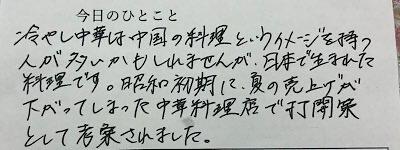 今日のひとこと
冷やし中華は中国の料理というイメージを持つ
人が多いかもしれませんが、日本で生まれた
料理です。昭和初期に、夏の売上げが
下がってしまった中華料理店で打開案
として考案されました。